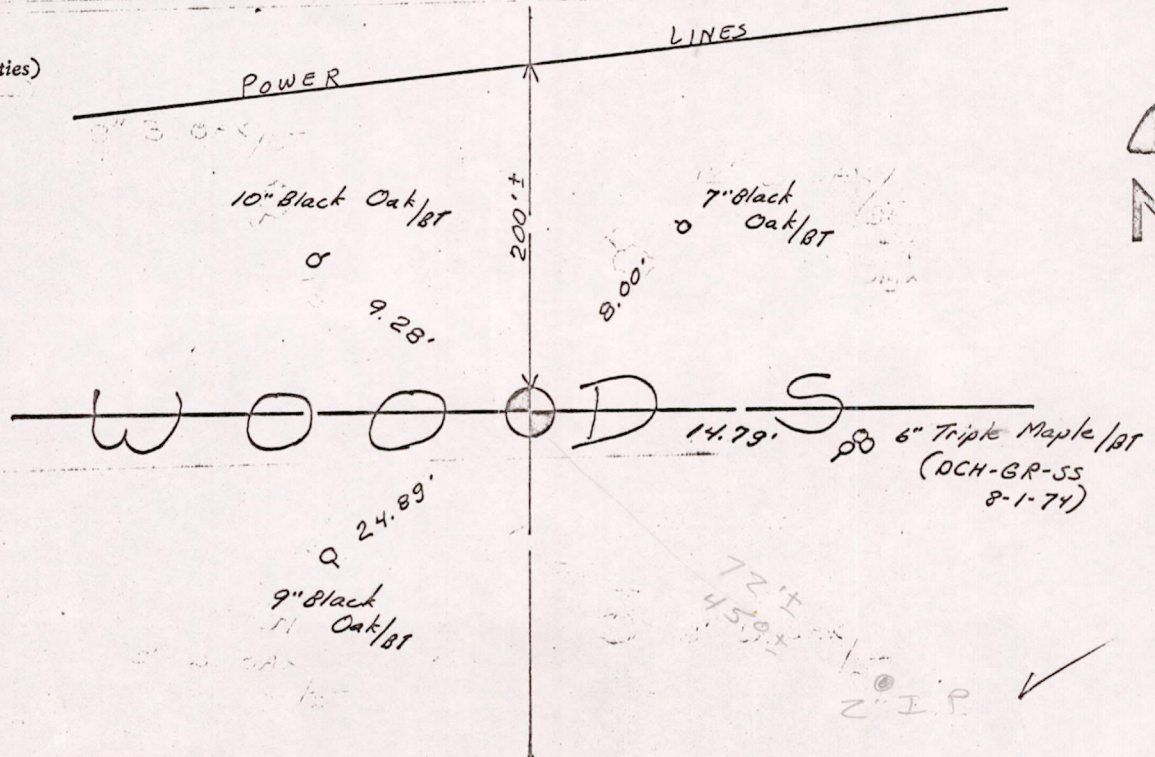 ties)
POWER LINES
10" Black Oak/BT
200'±
7" Black
Oak/BT
9.28'
8.00'
WOODS
14.79'
6" Triple Maple/BT
(DCH-GR-SS
8-1-74)
24.89'
9" Black
Oak/BT
72'±
45°±
2" I.P.
N